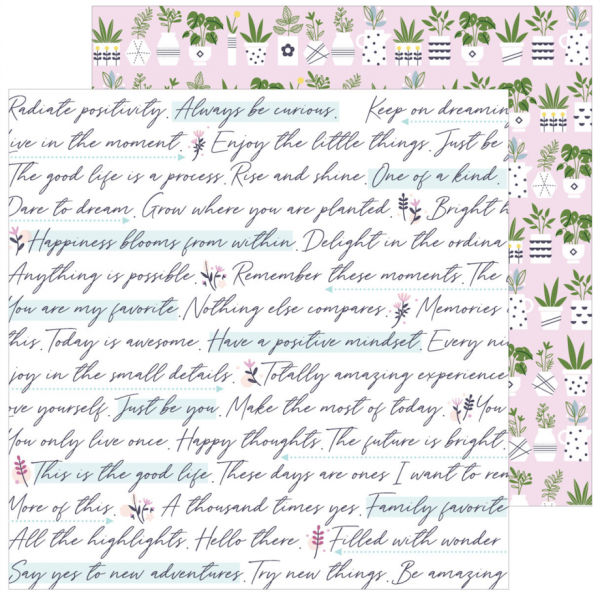 Radiate positivity. Always be curious. Keep on dreamin
ive in the moment. Enjoy the little things. Just be
The good life is a process. Rise and shine. One of a kind.
Dare to dream. Grow where you are planted. Bright h
Happiness blooms from within. Delight in the ordina
Anything is possible. Remember these moments. The
You are my favorite. Nothing else compares. Memories
this. Today is awesome. Have a positive mindset. Every ni
joy in the small details. Totally amazing experience
ove yourself. Just be you. Make the most of today. You
You only live once. Happy thoughts. The future is bright.
This is the good life. These days are ones I want to rem
More of this. A thousand times yes. Family favorite
All the highlights. Hello there. Filled with wonder
Say yes to new adventures. Try new things. Be amazing